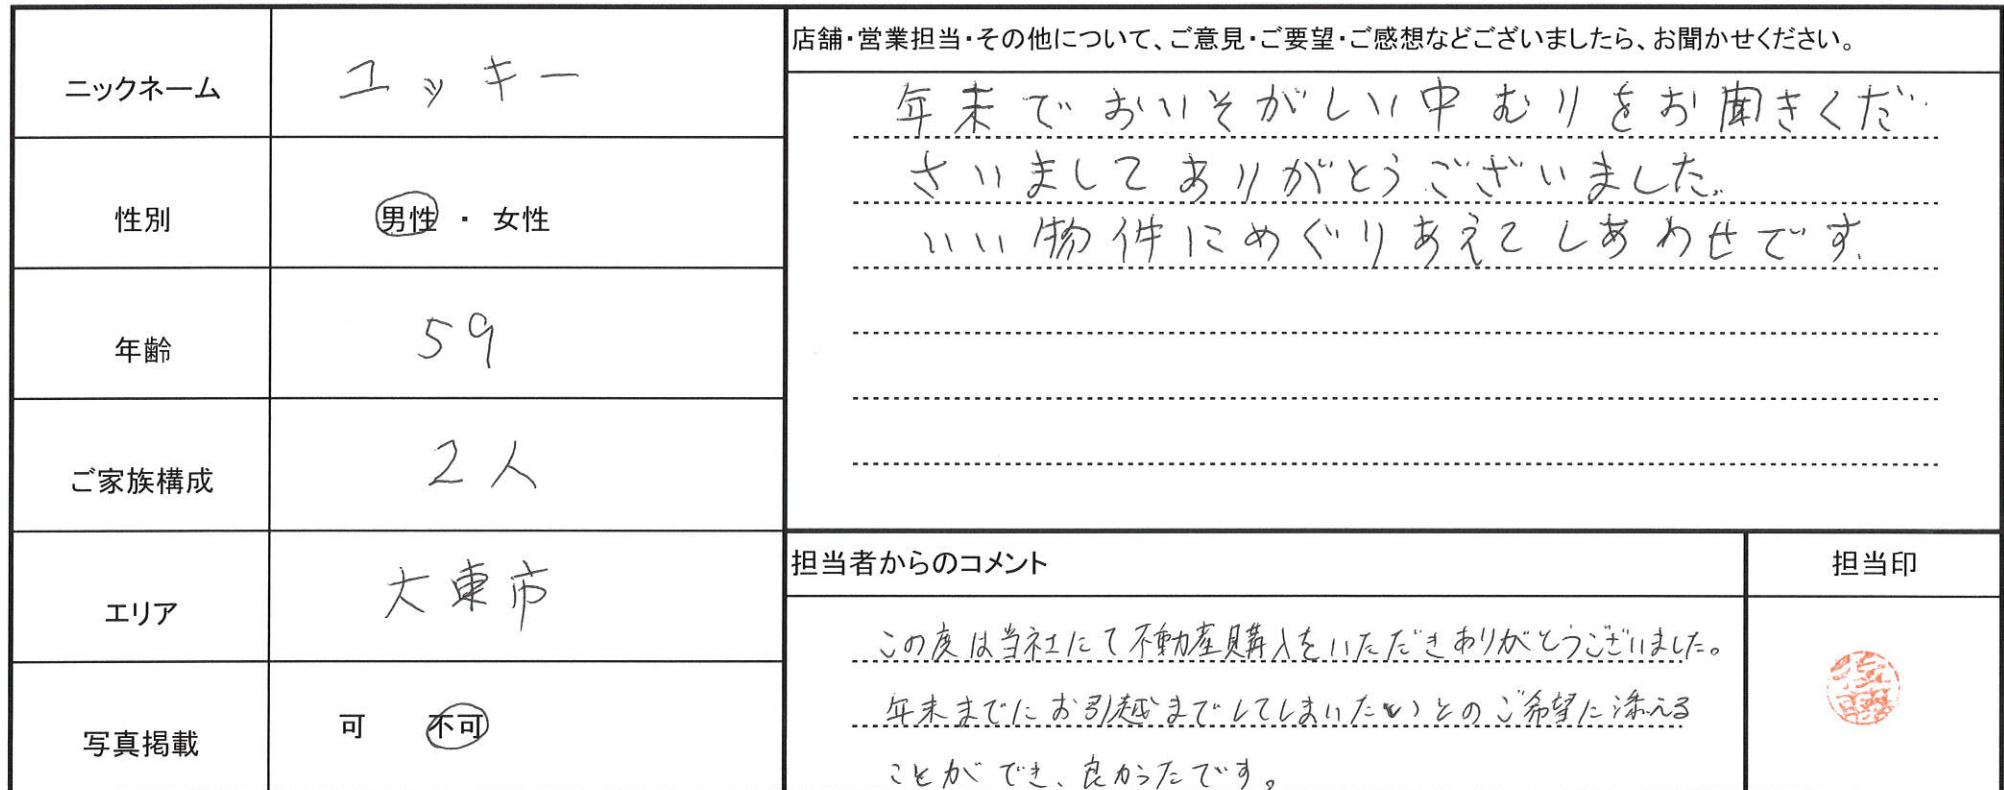 ニックネーム
ユッキー
性別
男性 ・ 女性
年齢
59
ご家族構成
2人
エリア
大東市
写真掲載
可 不可
店舗・営業担当・その他について、ご意見・ご要望・ご感想などございましたら、お聞かせください。
年末でおいそがしい中むりをお聞きくだ
さいましてありがとうございました。
いい物件にめぐりあえてしあわせです。
担当者からのコメント
この度は当社にて不動産購入をいただきありがとうございました。
年末までにお引越までしてしまいたいとのご希望に添える
ことができ、良かったです。
担当印